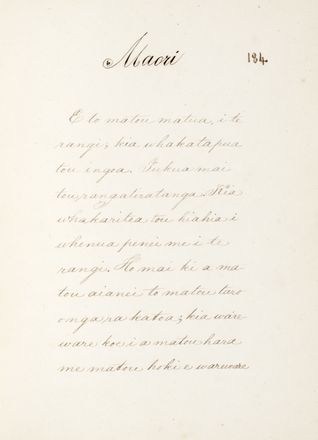 Maori
184.
E to matou matua, i te
rangi; kia whakatapua
tou ingoa. Tukua mai
tou rangatiratanga. Kia
whakaritea tou hiahia i
whenua penei me i te
rangi. Ho mai ki a ma-
tou aianei to matou taro
o nga ra katoa; kia ware
ware koe i a matou hara
me matou hoki e wareware